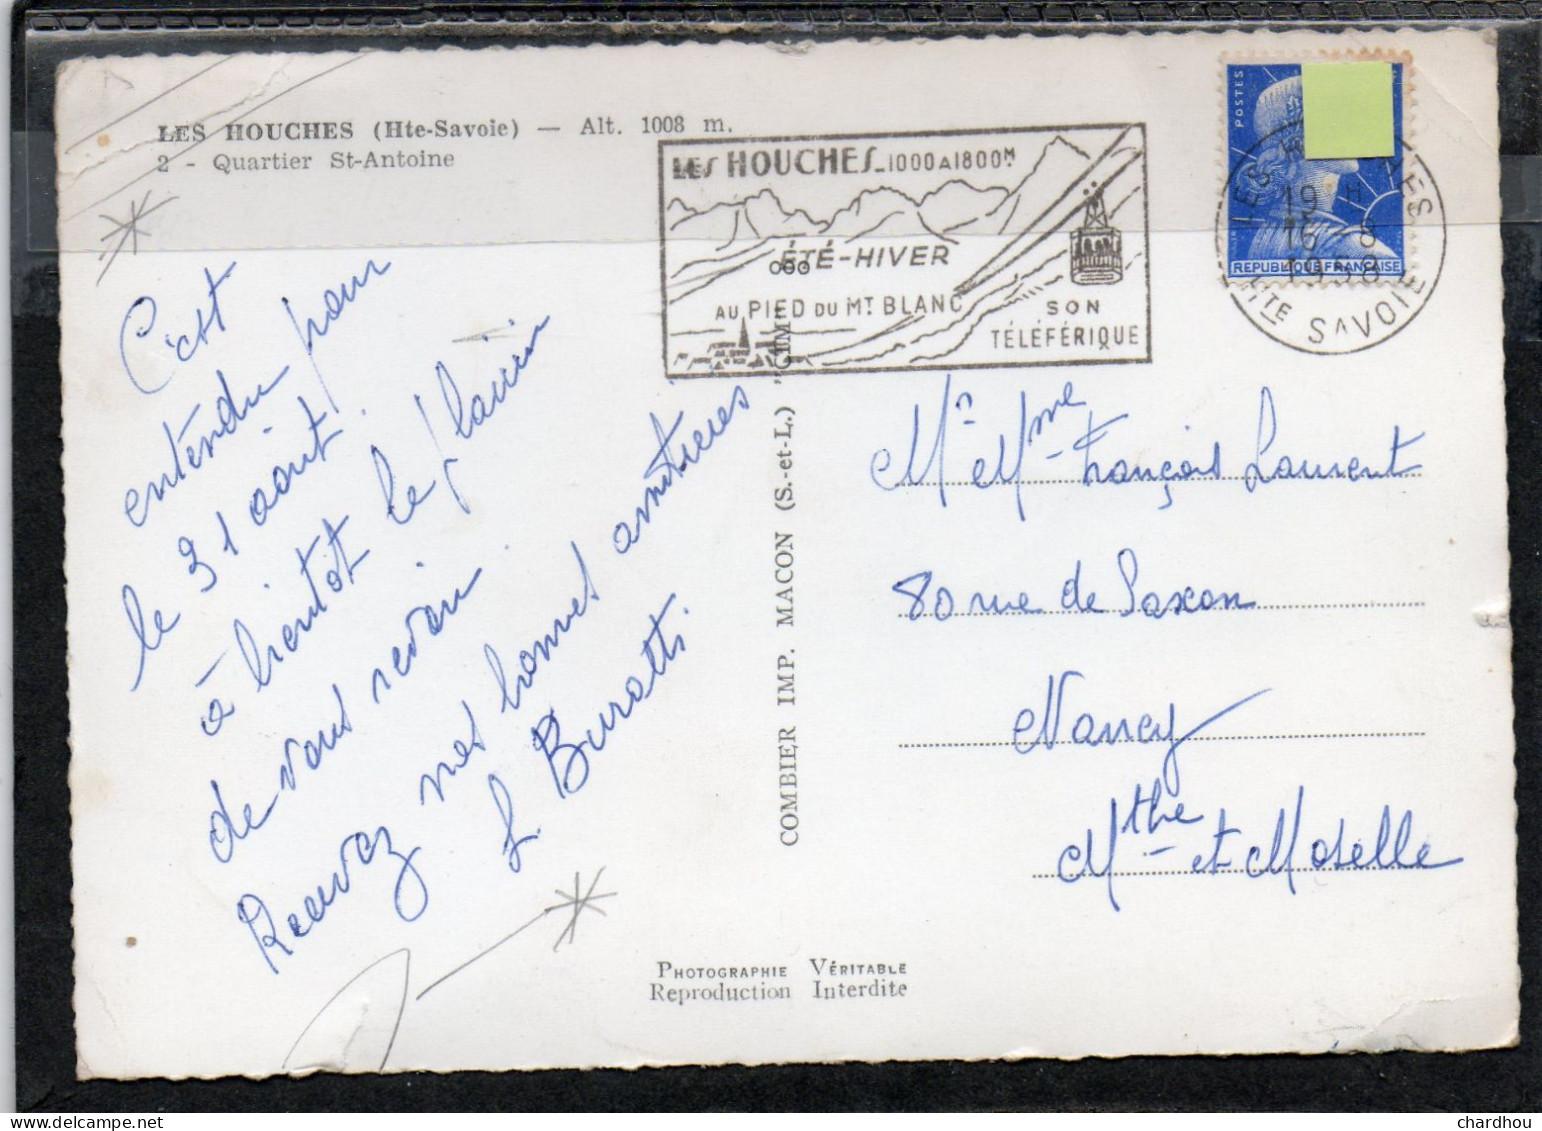 LES HOUCHES (Hte-Savoie) — Alt. 1008 m.
2 - Quartier St-Antoine
LES HOUCHES_1000A1800M
ÉTÉ-HIVER
AU PIED DU MT BLANC
SON
TÉLÉFÉRIQUE
POSTES
REPUBLIQUE FRANÇAISE
19 H
16 - 8
1958
HTE SAVOIE
C'est
entendu pour
le 31 août.
à bientôt le plaisir
de vous revoir.
Recevez mes bonnes amitiées
L. Burotti
COMBIER IMP. MACON (S.-et-L.) "CIM"
Mr et Mme François Laurent
80 rue de Saxon
Nancy
Mthe et Moselle
PHOTOGRAPHIE VÉRITABLE
Reproduction Interdite
chardhou